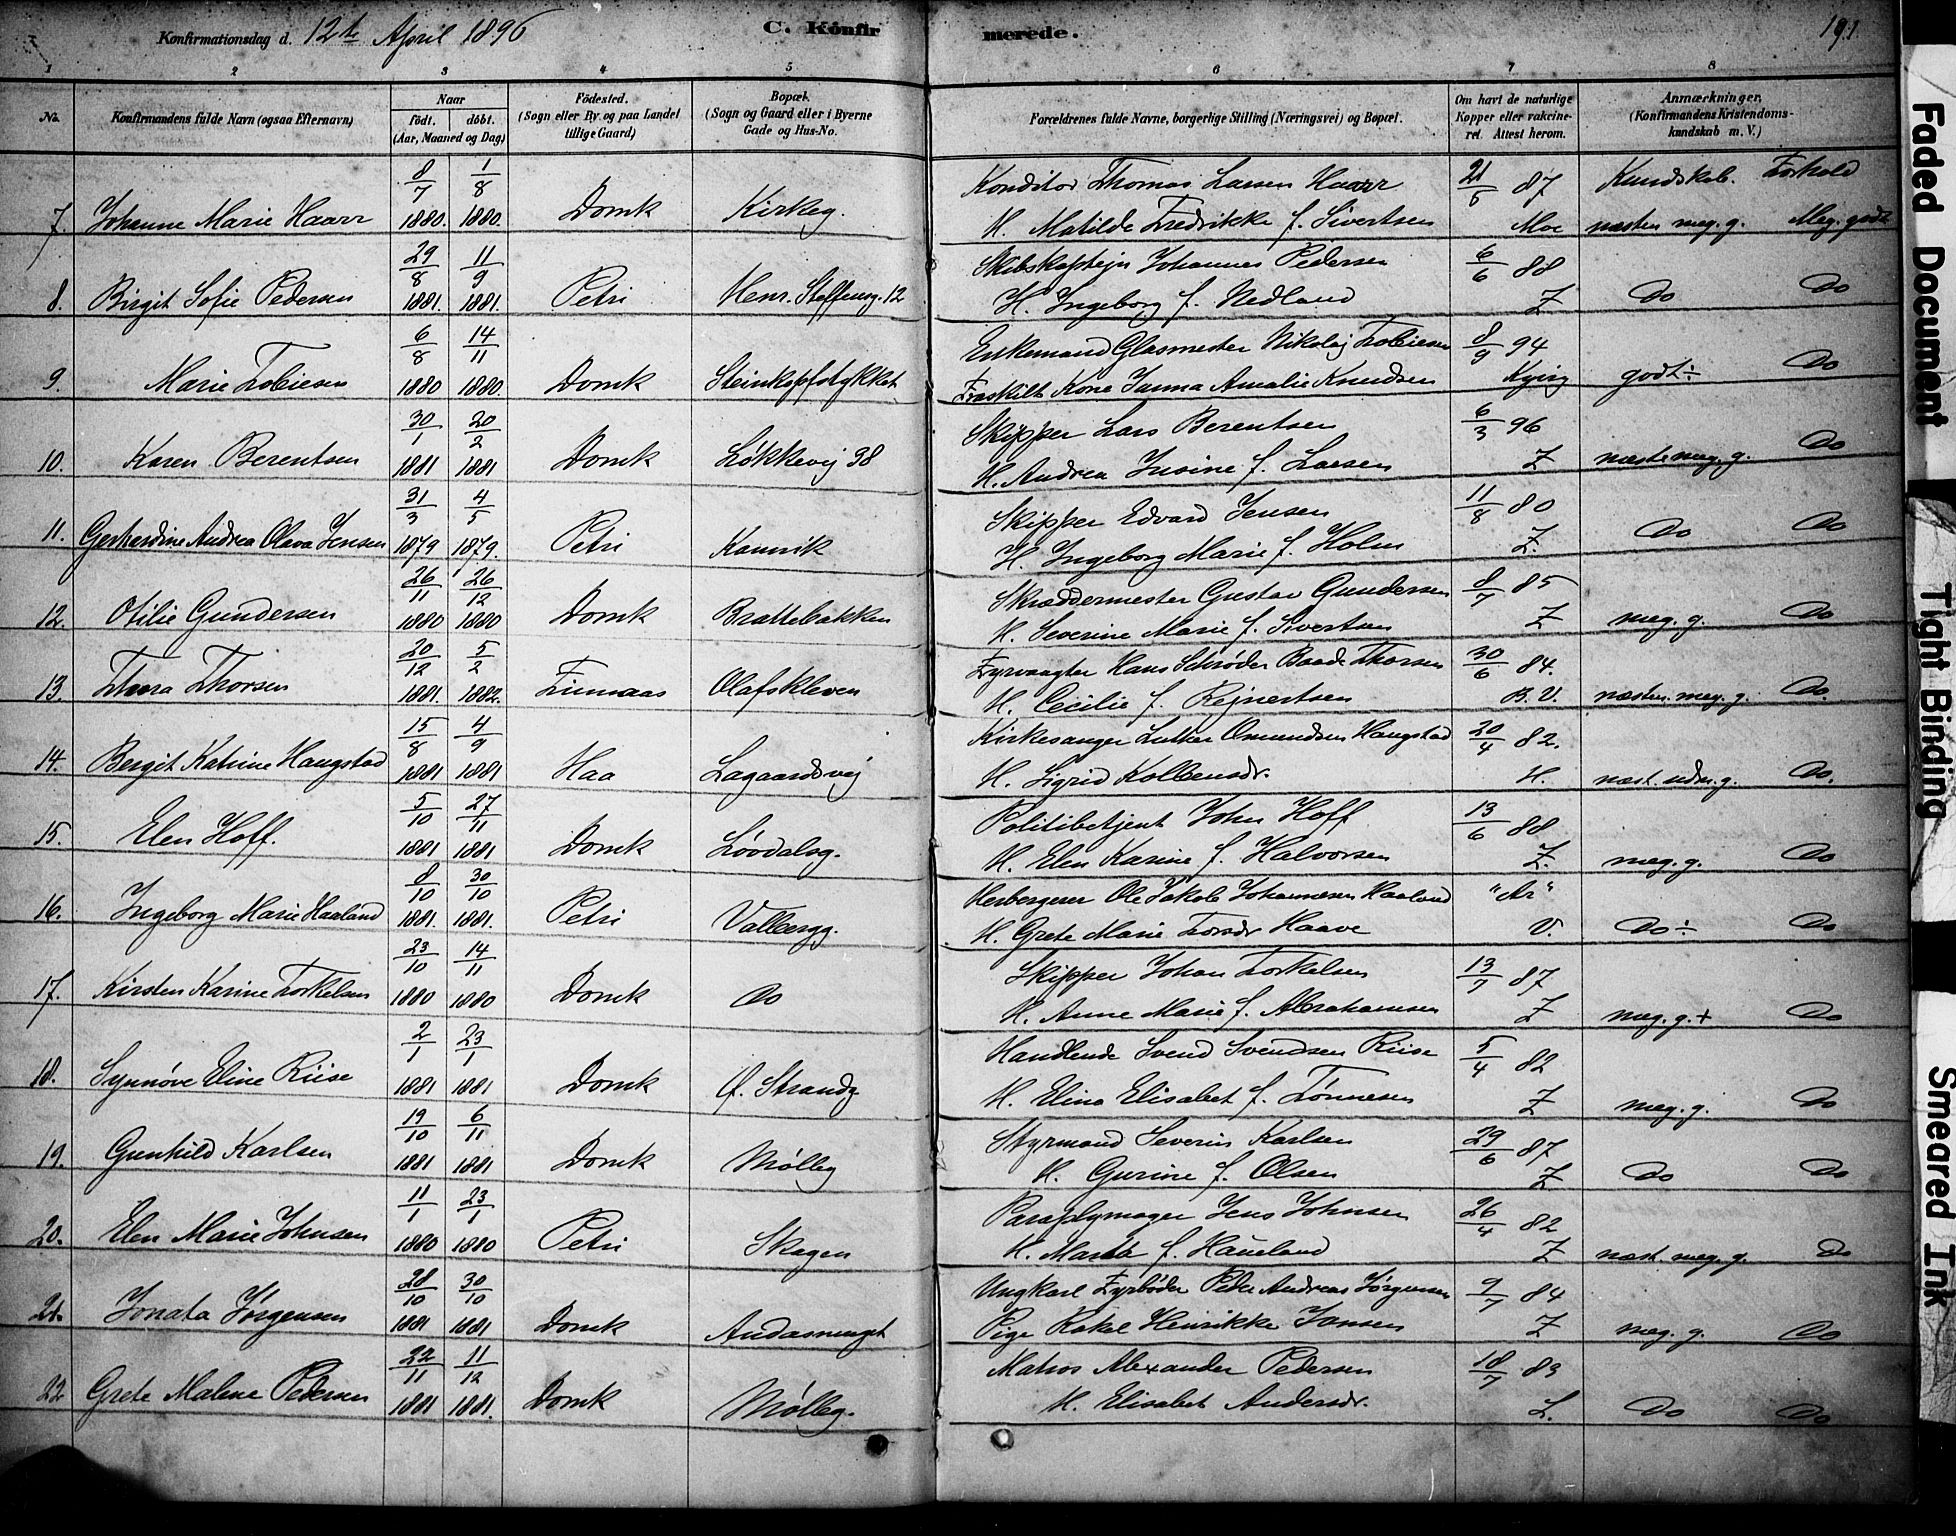 Konfirmationsdag d. 12te April 1896 C. Konfirmerede. 191
1 2 3 4 5 6 7 8
No. Konfirmandens fulde Navn (ogsaa Efternavn) Naar Födt. döbt. (Aar, Maaned og Dag) Födested. (Sogn eller By og paa Landet tillige Gaard) Bopæl. (Sogn og Gaard eller i Byerne Gade og Hus-No. Forældrenes fulde Navne, borgerlige Stilling (Næringsvei) og Bopæl. Om havt de naturlige Kopper eller vakcineret. Attest herom. Anmærkninger. (Konfirmandens Kristendomskundskab m. V.)
8/7 1/8 Konditor Thomas Larsen Haarr 21/5 87 Kundskab. Forhold
7. Johanne Marie Haarr 1880. 1880. Domk Kirkeg. H. Matilde Fredrikke f. Sivertsen Moe næsten meg. g. Meg. godt
29/8 11/9 Skibskaptejn Johannes Pedersen 6/6 88
8. Birgit Sofie Pedersen 1881. 1881. Petri Henr. Steffensg. 12 H. Ingeborg f. Nedland Z Do Do
6/8 14/11 Enkemand Glasmester Nikolaj Tobiesen 8/9 94
9. Marie Tobiesen 1880 1880. Domk Steinkopfstykket Fraskilt Kone Janna Amalie Knudsen godt÷ Do
30/1 20/2 Skipper Lars Berentsen 6/3 96
10. Karen Berentsen 1881 1881 Domk Løkkevej 38 H. Andrea Jusine f. Larsen Z næste meg. g. Do
31/3 4/5 Skipper Edvard Jensen 11/8 80
11. Gerhardine Andrea Olava Jensen 1879 1879. Petri Kannik H. Ingeborg Marie f. Holm Z. Do Do
26/11 26/12 Skræddermester Gustav Gundersen 8/7 85
12. Otilie Gundersen 1880 1880 Domk Brattebakken H. Severine Marie f. Sivertsen Z meg. g. Do
20/12 5/2 Fyrvaagter Hans Schrøder Baade Thorsen 30/6 84.
13. Thora Thorsen 1881. 1882. Finnaas Olafskleven H. Cecilie f. Rejnertsen B. V. næsten meg. g. Do.
15/8 4/9 Kirkesanger Lutker Omundsen Haugstad 20/4 82.
14. Bergit Katrine Haugstad 1881 1881 Haa Lagaardsvej H. Sigrid Kolbensdr. H. næst. udm. g. Do.
5/10 27/11 Politibetjent John Hoff 13/6 88
15. Elen Hoff. 1881 1881 Domk Løvdalsg. H. Elen Karine f. Halvorsen Z. meg. g. Do
8/10 30/10 Herbergerer Ole Jakob Johannesen Haaland "Ar"
16. Ingeborg Marie Haaland 1881. 1881. Petri Valbergg. H. Grete Marie Torsdr Haave V. Do÷ Do
23/10 14/11 Skipper Johan Torkelsen 13/7 87
17. Kirsten Karine Torkelsen 1880 1880 Domk Do H. Anne Marie f. Abrahamsen Z meg. g.+ Do
2/1 23/1 Handlende Svend Svendsen Riise 5/4 82
18. Synnøve Eline Riise 1881 1881 Domk Ø. Strandg H. Elina Elisabet f. Tønnesen Z meg. g. Do
19/10 6/11 Styrmand Severin Karlsen 29/6 87
19. Gunhild Karlsen 1881 1881 Domk Mølleg H. Gurine f. Olsen Z Do Do
11/1 23/1 Paraplymager Jens Johnsen 26/4 82
20. Elen Marie Johnsen 1880 1880 Petri Skagen H. Marta f. Haueland Z næst. meg. g. Do
28/10 30/10 Ungkarl Fyrbøder Peder Andreas Jørgensen 9/7 84
21. Jonata Jørgensen 1881 1881 Domk Andasmuget Pige Rakel Henrikke Jansen Z meg. g. Do
22/11 11/12 Matros Alexander Pedersen 18/7 83
22 Grete Malene Pedersen 1881 1881. Domk Mølleg. H. Elisabet Andersdr. L. Do Do
Faded Document
Tight Binding
Smeared Ink